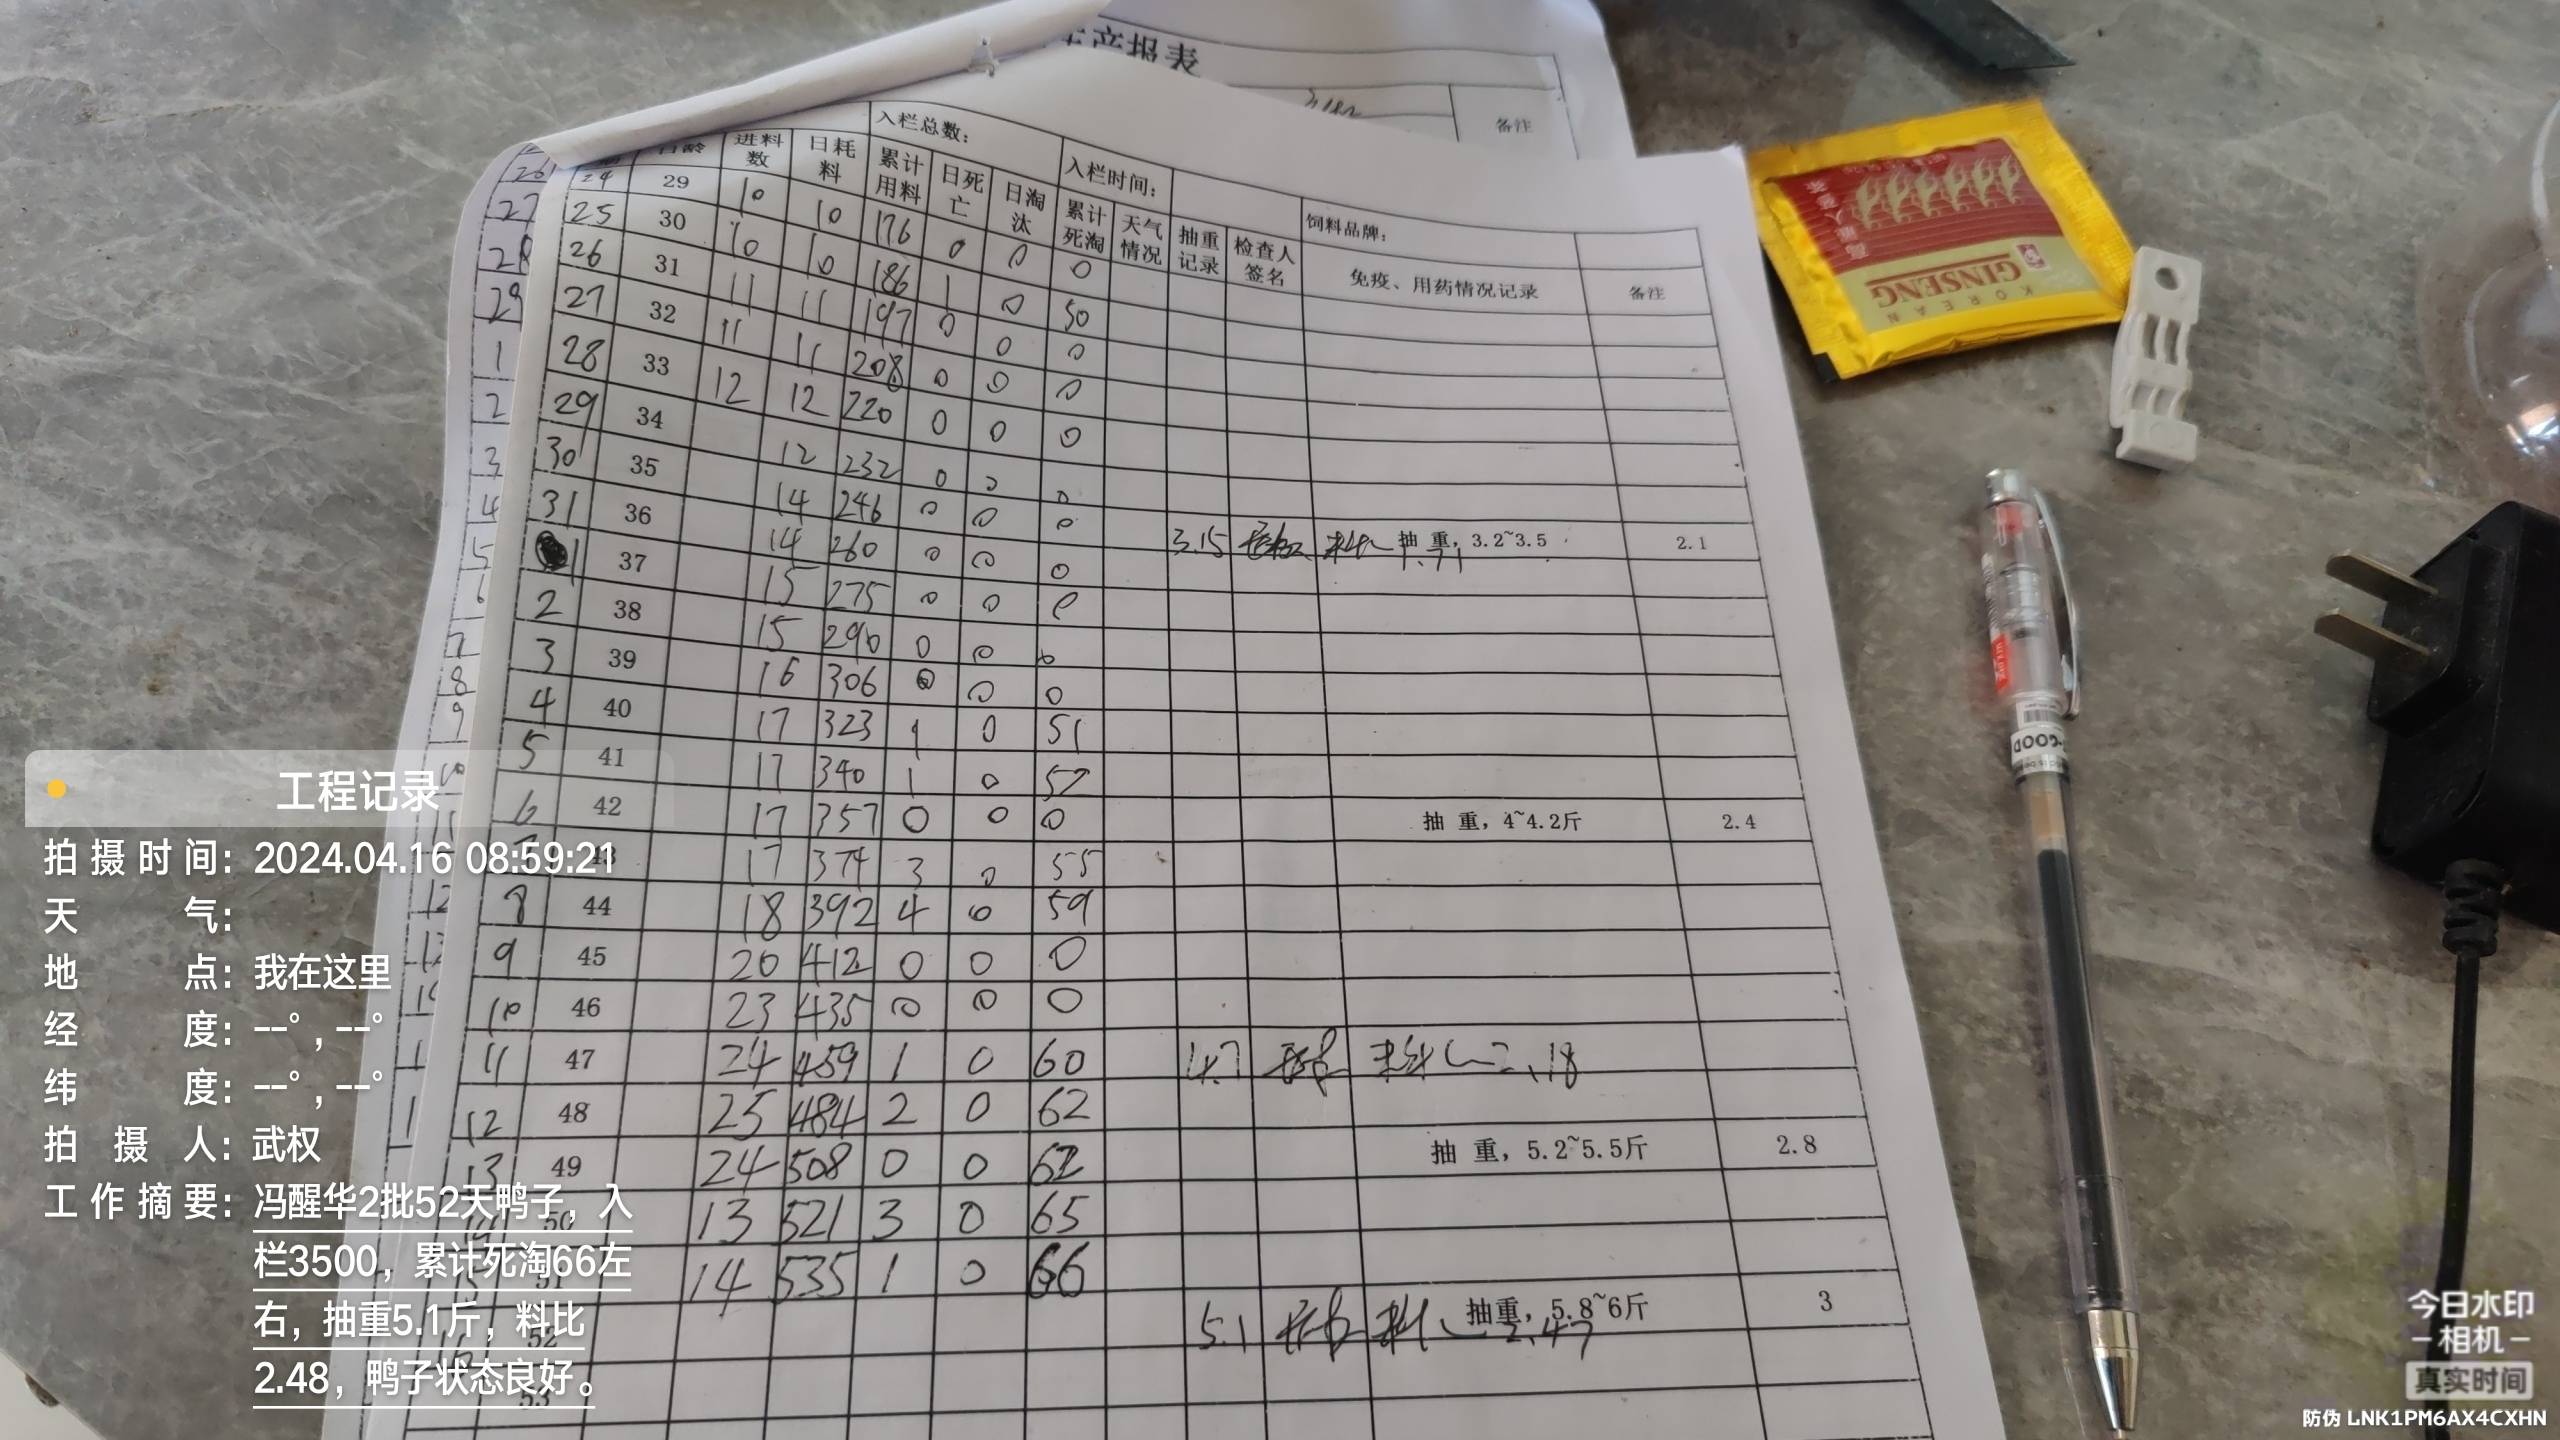 生产报表
备注
入栏总数:
入栏时间:
饲料品牌:
日龄 进料数 日耗料 累计用料 日死亡 日淘汰 累计死淘 天气情况 抽重记录 检查人签名 免疫、用药情况记录 备注
24 29 10 10 176 0 0 0
25 30 10 10 186 1 0 50
26 31 11 11 197 0 0 0
27 32 11 11 208 0 0 0
28 33 12 12 220 0 0 0
29 34 12 232 0 0 0
30 35 14 246 0 0 0
31 36 14 260 0 0 0 3.15 抽 重, 3.2~3.5 2.1
1.71
1 37 15 275 0 0 0
2 38 15 290 0 0 0
3 39 16 306 0 0 0
4 40 17 323 1 0 51
5 41 17 340 1 0 52
6 42 17 357 0 0 0 抽 重, 4~4.2斤 2.4
43 17 374 3 0 55
8 44 18 392 4 0 59
9 45 20 412 0 0 0
10 46 23 435 0 0 0
11 47 24 459 1 0 60 4.7 料比2.18
12 48 25 484 2 0 62
13 49 24 508 0 0 62 抽 重, 5.2~5.5斤 2.8
50 13 521 3 0 65
51 14 535 1 0 66
52 5.1 料比 抽重, 5.8~6斤 3
2.47
53
26
27
28
29
1
2
3
4
5
6
7
8
9
10
11
12
13
工程记录
拍摄时间: 2024.04.16 08:59:21
天气:
地点: 我在这里
经度: --°, --°
纬度: --°, --°
拍摄人: 武权
工作摘要: 冯醒华2批52天鸭子，入
栏3500，累计死淘66左
右，抽重5.1斤，料比
2.48，鸭子状态良好。
KOREAN
GINSENG
GOOD
今日水印
-相机-
真实时间
防伪 LNK1PM6AX4CXHN